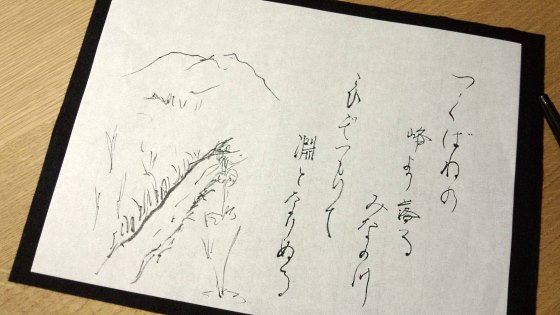 つくばねの
峰より落る
みなの川
こひぞつもりて
淵となりぬる